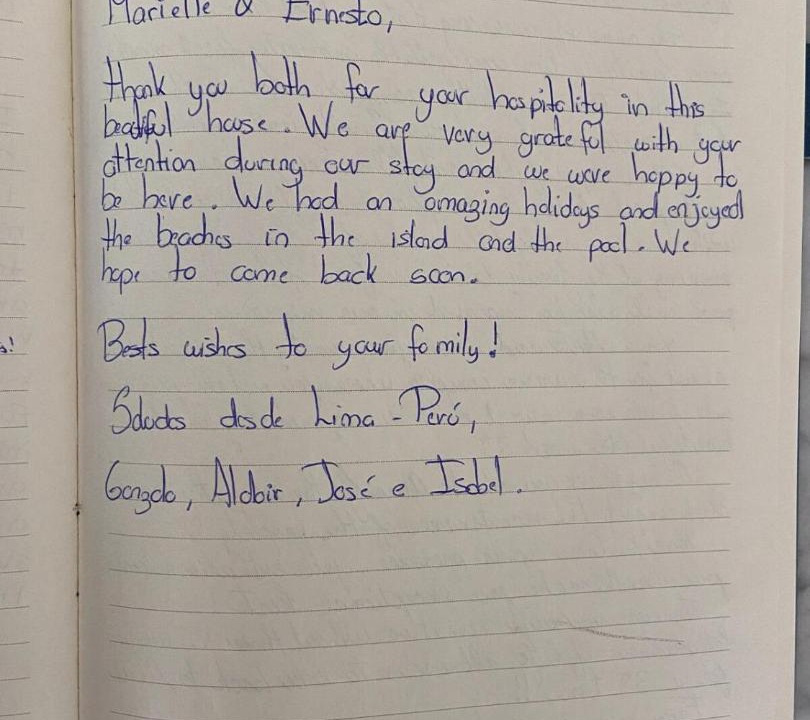 Marielle & Ernesto,
thank you both for your hospitality in this
beatiful house. We are very grateful with your
attention during our stay and we were happy to
be here. We had an amazing holidays and enjoyed
the beaches in the island and the pool. We
hope to come back soon.
Bests wishes to your family!
Saludos desde Lima - Perú,
Gonzalo, Aldair, José e Isabel.
s!